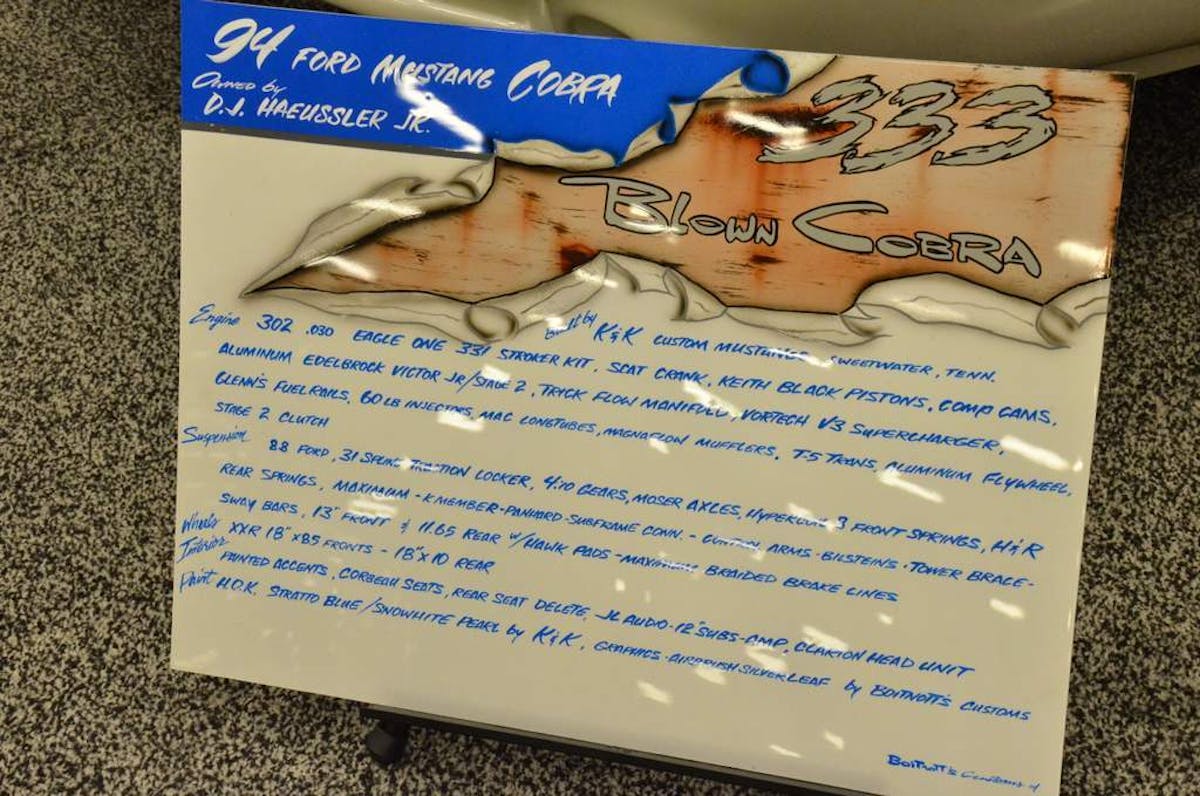 94 FORD MUSTANG COBRA
OWNED by
D.J. HAEUSSLER JR.
333
BLOWN COBRA
Built by K&K CUSTOM MUSTANGS, SWEETWATER, TENN.
Engine 302 .030 EAGLE ONE 331 STROKER KIT, SCAT CRANK, KEITH BLACK PISTONS, COMP CAMS,
ALUMINUM EDELBROCK VICTOR JR/STAGE 2, TRICK FLOW MANIFOLD, VORTECH V3 SUPERCHARGER,
GLENN'S FUELRAILS, 60 LB INJECTORS, MAC LONGTUBES, MAGNAFLOW MUFFLERS, T-5 TRANS, ALUMINUM FLYWHEEL,
STAGE 2 CLUTCH
Suspension 8.8 FORD, 31 SPLINE TRACTION LOCKER, 4:10 GEARS, MOSER AXLES, HYPERCOIL 3 FRONT SPRINGS, H&R
REAR SPRINGS, MAXIMUM - K MEMBER - PANHARD - SUBFRAME CONN. - CONTROL ARMS - BILSTEINS - TOWER BRACE -
SWAY BARS, 13" FRONT & 11.65 REAR W/HAWK PADS - MAXIMUM BRAIDED BRAKE LINES
Wheels XXR 18"X8.5 FRONTS - 18"X10 REAR
Interior PAINTED ACCENTS, CORBEAU SEATS, REAR SEAT DELETE, JL AUDIO-12"SUBS-AMP, CLARION HEAD UNIT
Paint H.O.K. STRATTO BLUE/SNOWHITE PEARL by K&K, GRAPHICS-AIRBRUSH SILVERLEAF by BOITNOTT'S CUSTOMS
BOITNOTT'S